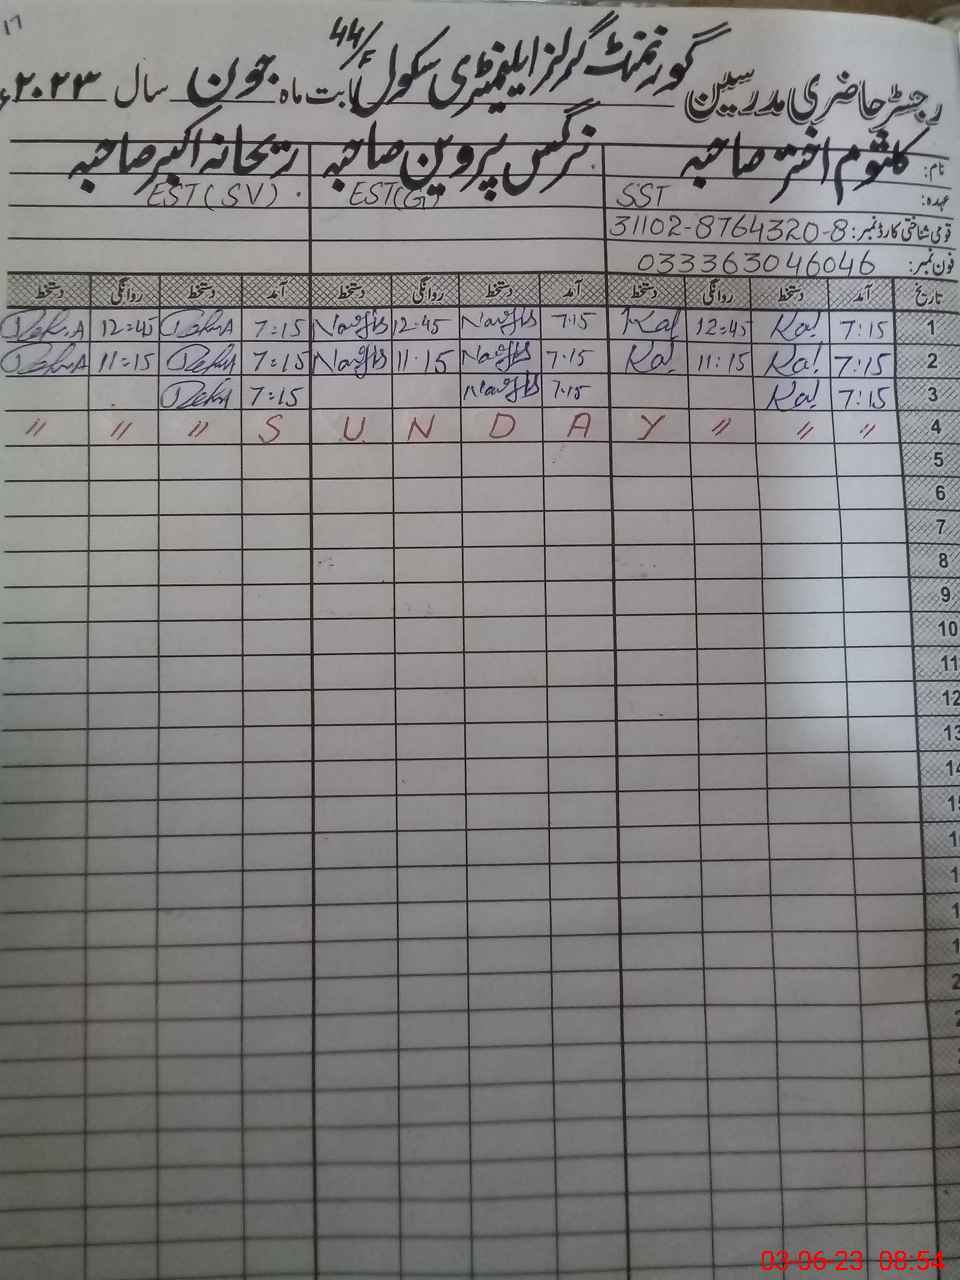 ۱۷
رجسٹر حاضری مدرسین گورنمنٹ گرلز ایلیمنٹری سکول 44/ بابت ماہ جون سال ۲۰۲۳ء
نام: کلثوم اختر صاحبہ نرگس پروین صاحبہ ریحانہ اکبر صاحبہ
عہدہ: SST EST(G) EST(SV)
قومی شناختی کارڈ نمبر: 31102-8764320-8
فون نمبر: 033363046046
تاریخ آمد دستخط روانگی دستخط آمد دستخط روانگی دستخط آمد دستخط روانگی دستخط
1 7:15 Kal 12:45 Kal 7.15 Nargis 12:45 Nargis 7:15 12:45
2 7:15 Kal 11:15 Kal 7.15 Nargis 11.15 Nargis 7:15 11:15
3 7:15 Kal 7.15 Nargis 7:15
4 " " " S U N D A Y " " "
5
6
7
8
9
10
11
12
13
14
03-06-23 08:54